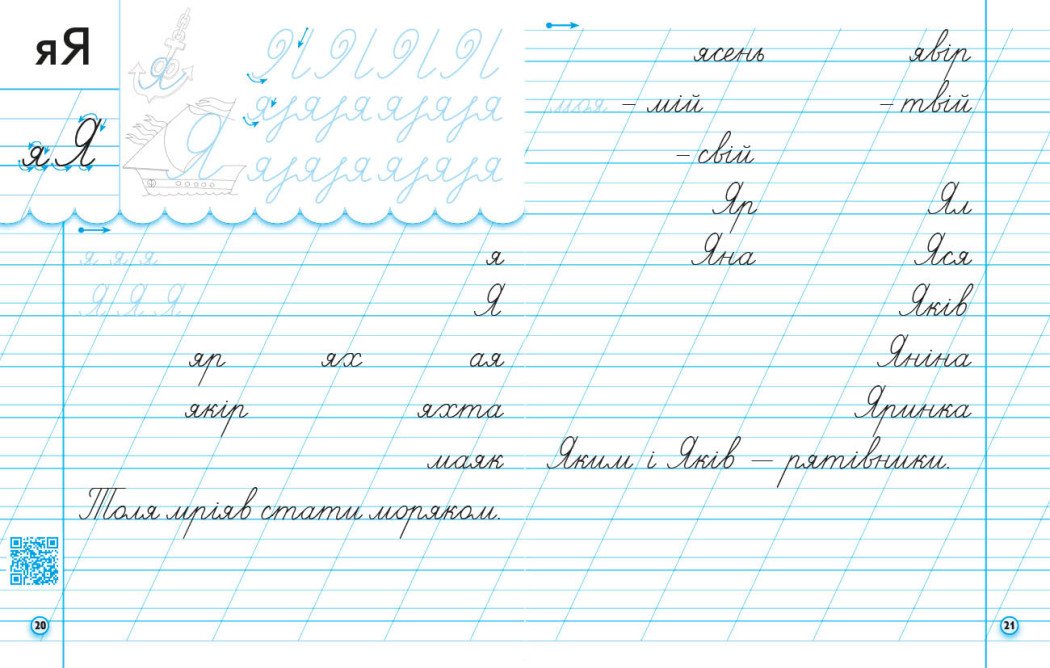 яЯ
я Я
я
Я
Я Я Я Я Я
я я я я я я я я
я я я я я я я я
я я я я
Я Я Я Я
яр ях ая
якір яхта
маяк
Толя мріяв стати моряком.
20
ясень явір
моя – мій – твій
– свій
Яр Ял
Яна Яся
Яків
Яніна
Яринка
Яким і Яків — рятівники.
21